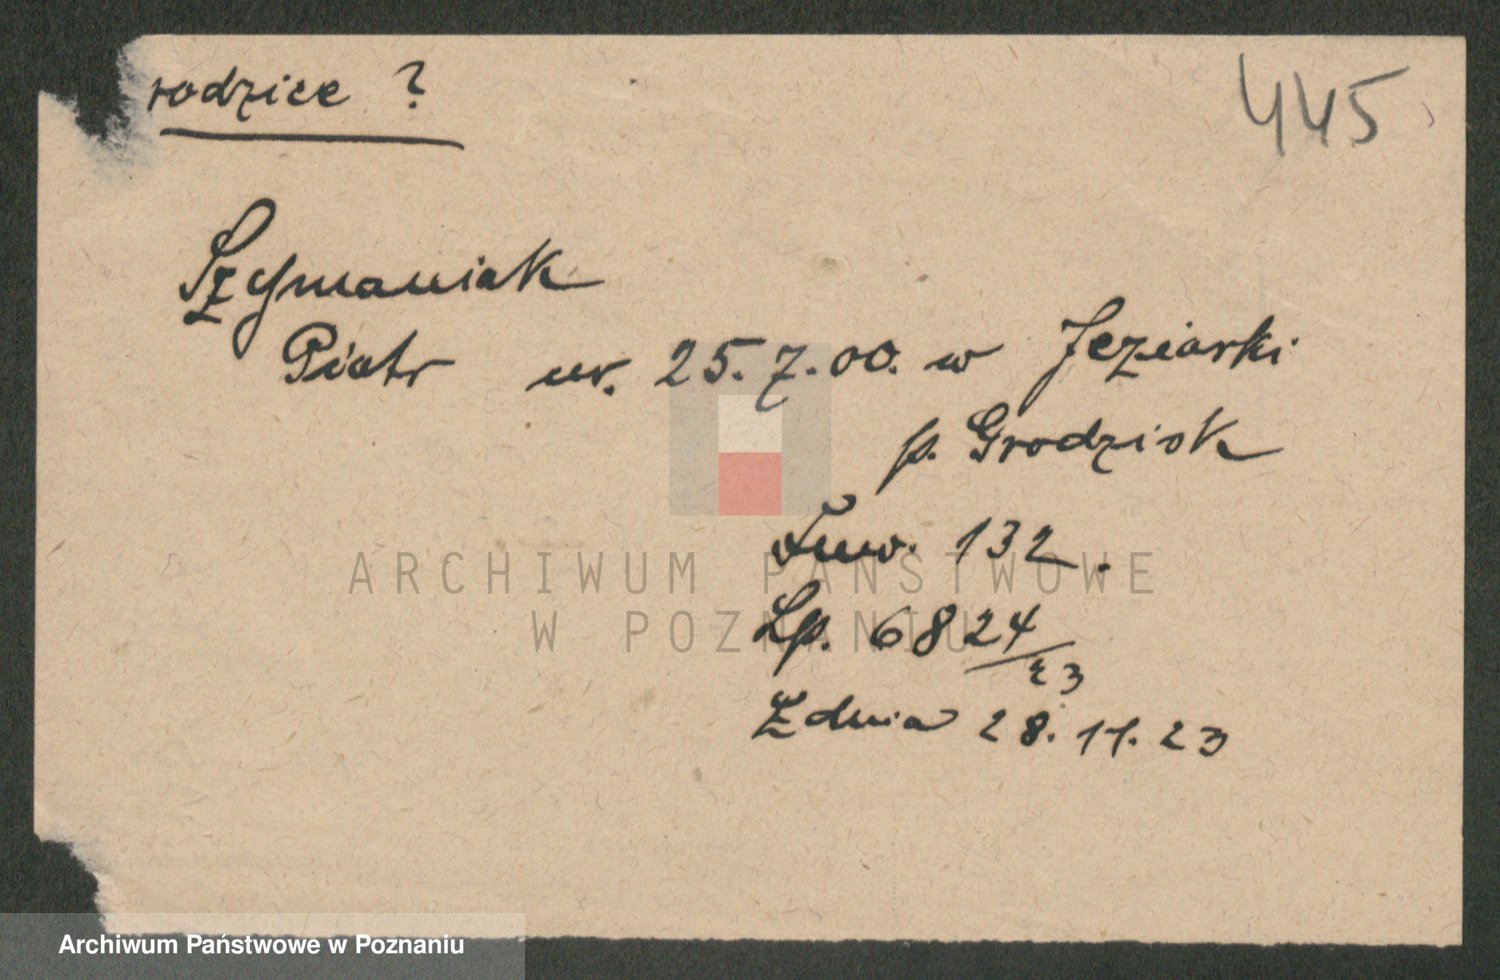 rodzice ?
445
Szymaniak
Piotr ur. 25.7.00. w Jeziorki
p. Grodzisk
Inw. 132.
Lp. 6824/23
Z dnia 28.11.23
ARCHIWUM PAŃSTWOWE
W POZNANIU
Archiwum Państwowe w Poznaniu